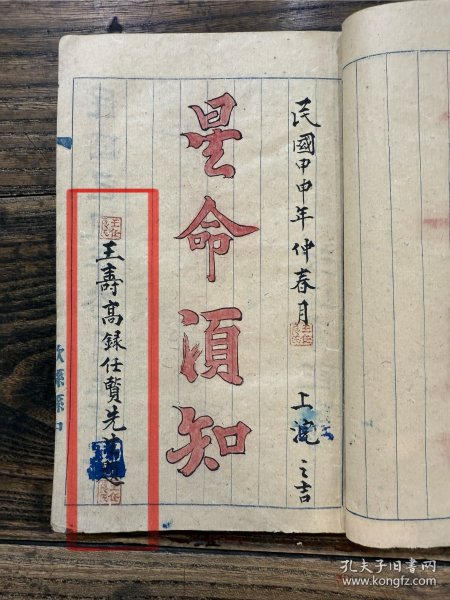 民國甲申年仲春月 上浣之吉
星命湏知
王壽髙録任賢先
孔夫子旧书网
www.kongfz.com